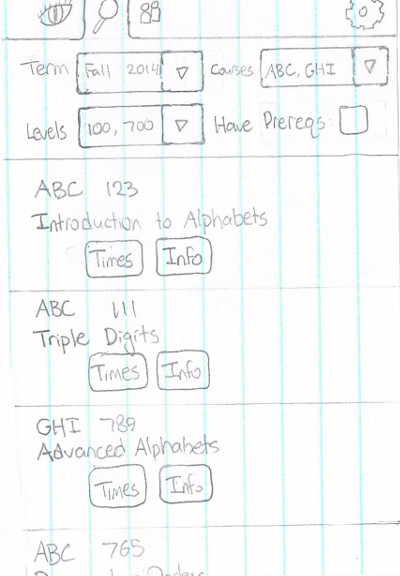 Term Fall 2014 Courses ABC, GHI
Levels 100, 700 Have Prereqs:
ABC 123
Introduction to Alphabets
Times Info
ABC 111
Triple Digits
Times Info
GHI 789
Advanced Alphabets
Times Info
ABC 765